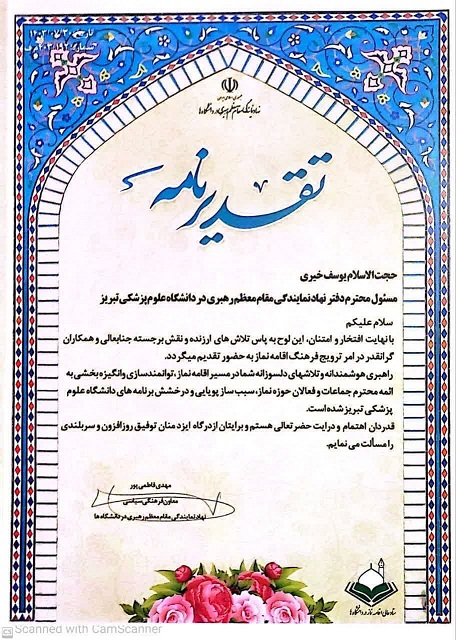 تاریخ: ۱۴۰۳/۰۷/۳۰
جمهوری اسلامی ایران
نهاد نمایندگی مقام معظم رهبری در دانشگاه‌ها
تقدیرنامه
حجت الاسلام یوسف خیری
مسئول محترم دفتر نهاد نمایندگی مقام معظم رهبری در دانشگاه علوم پزشکی تبریز
سلام علیکم
با نهایت افتخار و امتنان، این لوح به پاس تلاش های ارزنده و نقش برجسته جنابعالی و همکاران
گرانقدر در امر ترویج فرهنگ اقامه نماز به حضور تقدیم میگردد.
راهبری هوشمندانه و تلاشهای دلسوزانه شما در مسیر اقامه نماز، توانمندسازی وانگیزه بخشی به
ائمه محترم جماعات و فعالان حوزه نماز، سبب ساز پویایی و درخشش برنامه های دانشگاه علوم
پزشکی تبریز شده است.
قدردان اهتمام و درایت حضرتعالی هستم و برایتان ازدرگاه ایزد منان توفیق روزافزون و سربلندی
را مسألت می نمایم.
مهدی فاطمی پور
معاون فرهنگی سیاسی
نهاد نمایندگی مقام معظم رهبری در دانشگاه ها
ستاد عالی اقامه نماز دانشگاه‌ها
Scanned with CamScanner